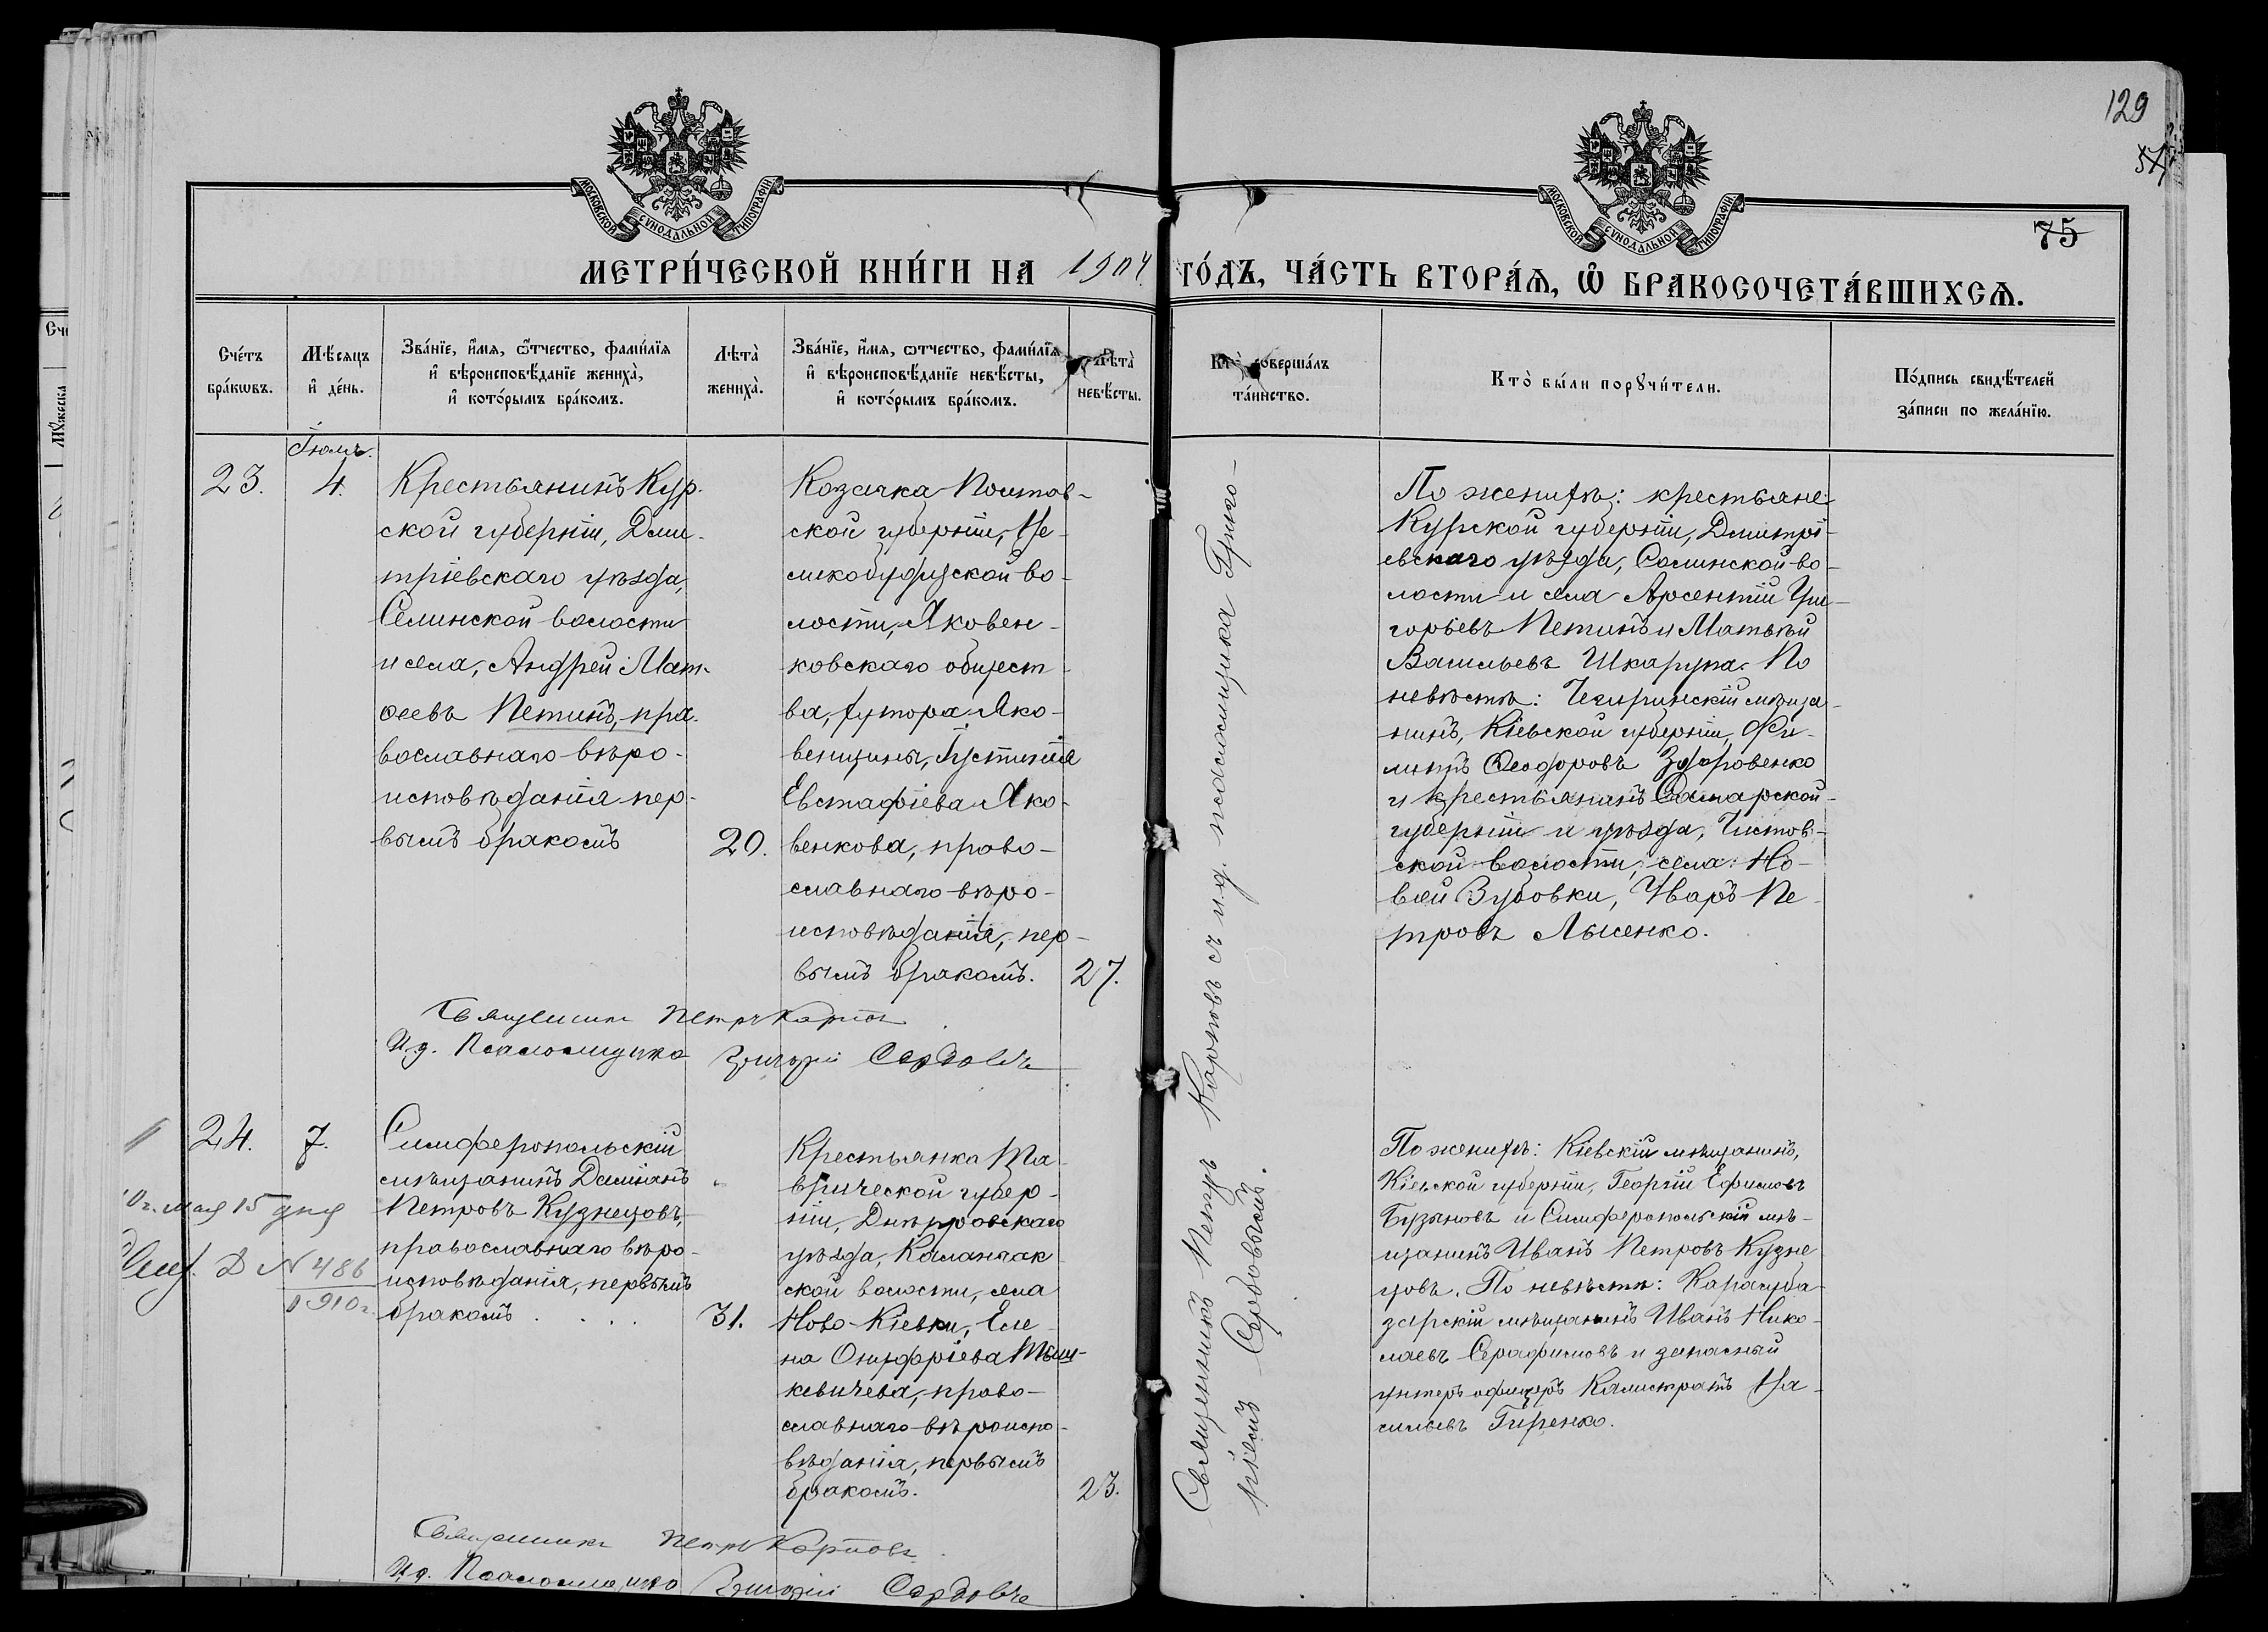 129
57
75
МОСКОВСКОЙ СѴНОДАЛЬНОЙ ТИПОГРАФІИ
МОСКОВСКОЙ СѴНОДАЛЬНОЙ ТИПОГРАФІИ
МЕТРИ́ЧЕСКОЙ КНИ́ГИ НА 1904 ГО́ДЪ, ЧА́СТЬ ВТОРА́Ѧ, Ѽ БРАКОСОЧЕТА́ВШИХСѦ.
Сче́тъ
бра́кѡвъ.
Мѣ́сяцъ
и҆ де́нь.
Зва́нїе, и҆́мя, ѻ҆́тчество, фамилїя
и҆ вѣроисповѣ́данїе жениха̀,
и҆ кото́рымъ бра́комъ.
Лѣта̀
жениха̀.
Зва́нїе, и҆́мя, ѻ҆́тчество, фами́лїя
и҆ вѣроисповѣ́данїе невѣ́сты,
и҆ кото́рымъ бра́комъ.
Лѣта̀
невѣ́сты.
Кто̀ соверша́лъ
та́инство.
Кто̀ бы́ли порꙋчи́тели.
По́дпись свидѣ́телей
за́писи по жела́нїю.
Іюль.
23.
4.
Крестьянинъ Кур-
ской губерніи, Дми-
тріевскаго уѣзда,
Селинской волости
и села, Андрей Мат-
ѳеевъ Петинъ, пра-
вославнаго вѣро-
исповѣданія пер-
вымъ бракомъ
20.
Козачка Полтав-
ской губерніи, Ве-
ликобудищской во-
лости, Яковен-
ковскаго общест-
ва, хутора Яко-
венщины, Іустинія
Евстафіева Яко-
венкова, право-
славнаго вѣро-
исповѣданія, пер-
вымъ бракомъ.
27.
По женихѣ: крестьяне
Курской губерніи, Дмитрі-
евскаго уѣзда, Селинской во-
лости и села Арсентій Гри-
горьевъ Петинъ и Матвѣй
Васильевъ Шкарупа. По
невѣстѣ: Чигиринскій мѣща-
нинъ, Кіевской губерніи, Фи-
липпъ Ѳеодоровъ Здоровенко
и крестьянинъ Самарской
губерніи и уѣзда, Чистов-
ской волости, села Но-
вой Зубовки, Уваръ Пе-
тровъ Лысенко.
Священникъ Петръ Карповъ
И.д. Псаломщика Григорій Сердовичъ
24.
7.
Симферопольскій
мѣщанинъ Даміанъ
Петровъ Кузнецовъ,
православнаго вѣро-
исповѣданія, первымъ
бракомъ
31.
мая 15 дня
N 486
1910 г.
Крестьянка Та-
врической губер-
ніи, Днѣпровскаго
уѣзда, Каланчак-
ской волости, села
Ново-Кіевки, Еле-
на Онуфріева
кевичева, право-
славнаго вѣроиспо-
вѣданія, первымъ
бракомъ.
23.
Священникъ Петръ Карповъ съ и.д. псаломщика Григо-
ріемъ Сердовичемъ.
По женихѣ: Кіевскій мѣщанинъ,
Кіевской губерніи, Георгій Ефимовъ
Бузановъ и Симферопольскій мѣ-
щанинъ Иванъ Петровъ Кузне-
цовъ. По невѣстѣ: Карасуба-
зарскій мѣщанинъ Иванъ Нико-
лаевъ Серафимовъ и запасный
унтеръ офицеръ Калистратъ Ва-
сильевъ Гиренко.
Священникъ Петръ Карповъ
И.д. Псаломщика Григорій Сердовичъ